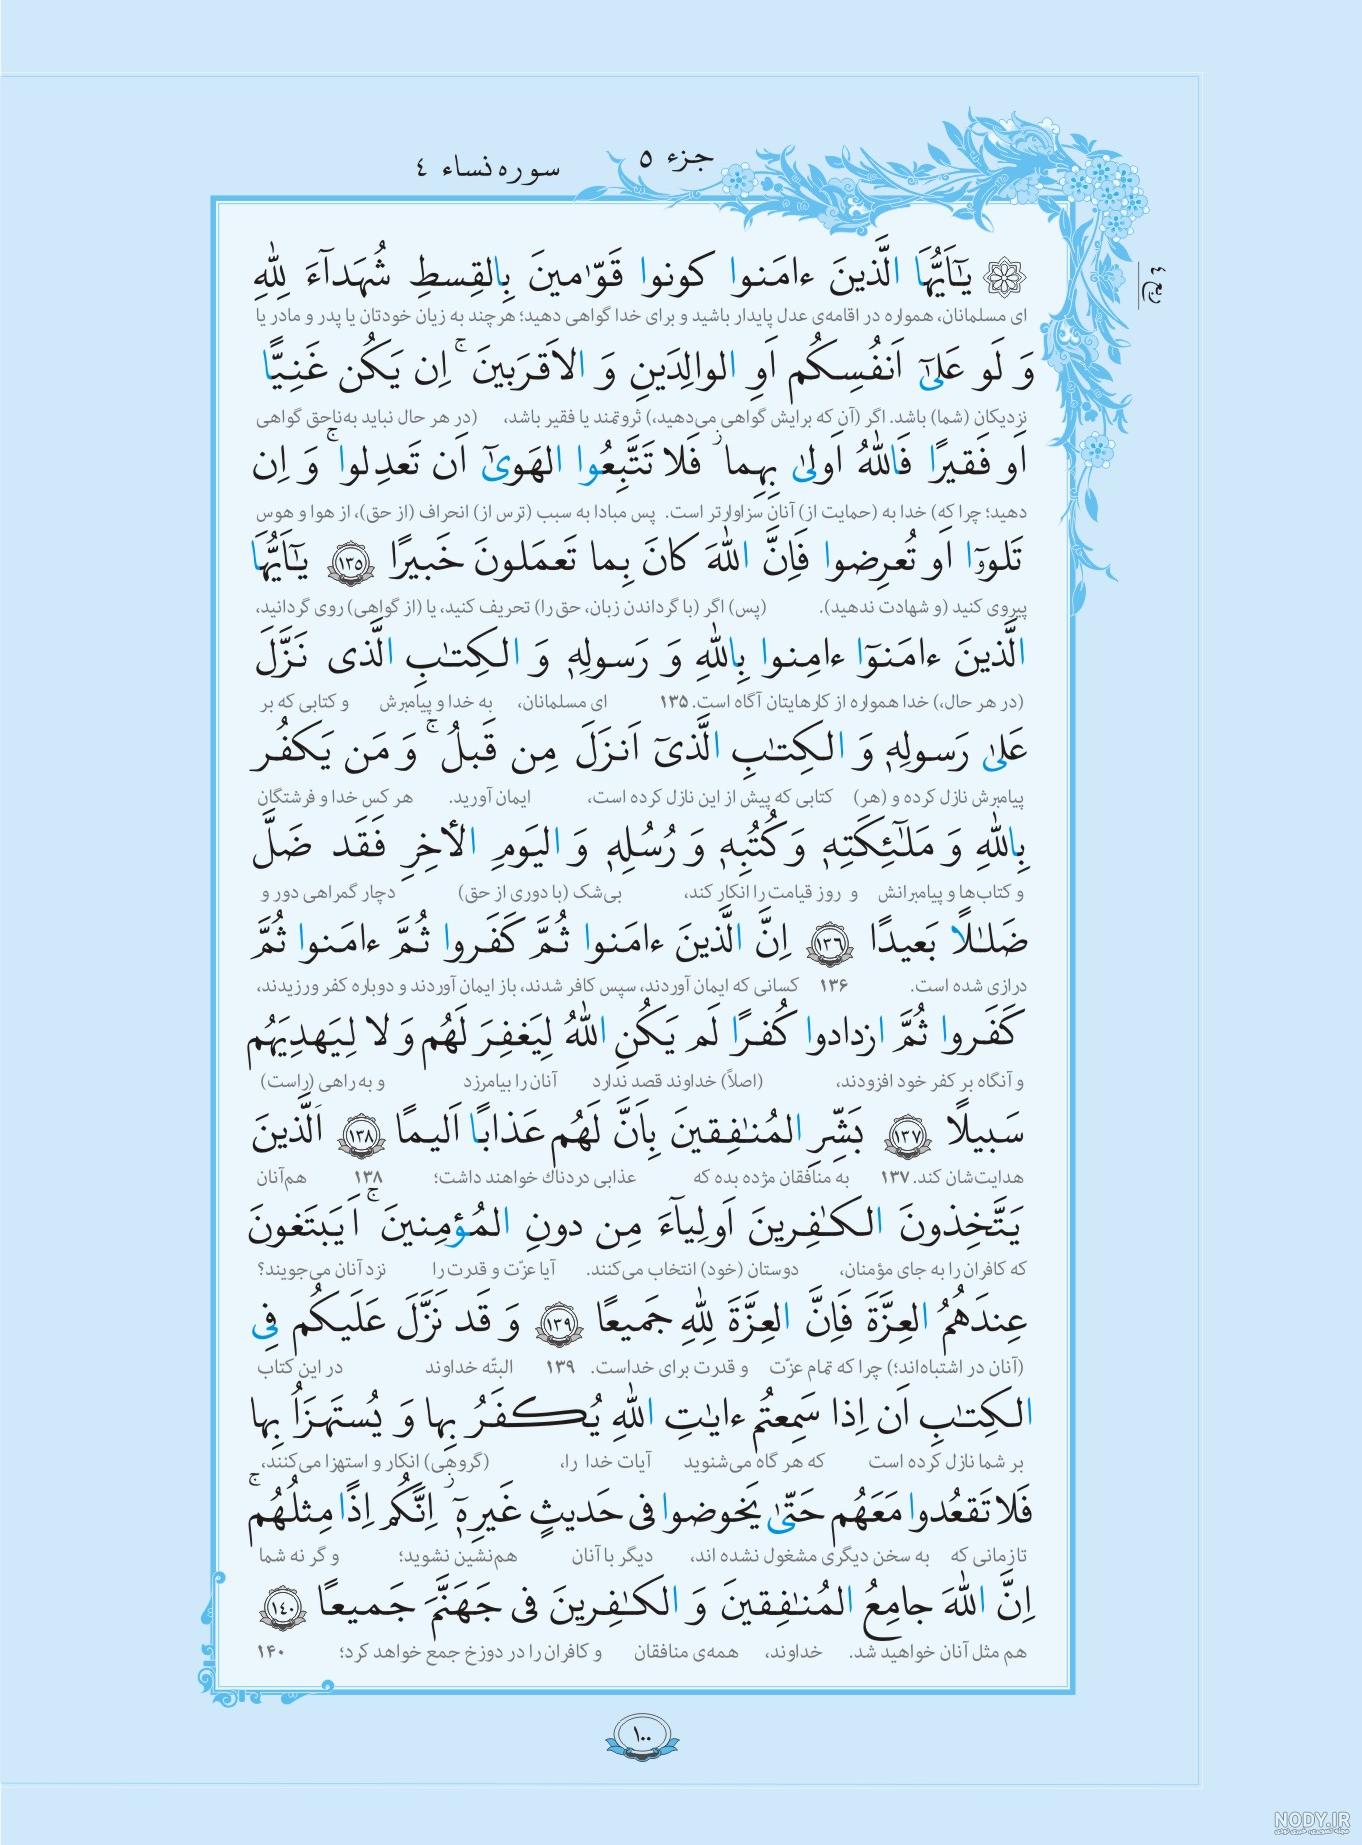 جزء ٥
سوره نساء ٤
ربع ٤
يـٰٓاَيُّهَا الَّذينَ ءامَنوا كونوا قَوّٰمينَ بِالقِسطِ شُهَداءَ لِلّٰهِ
ای مسلمانان، همواره در اقامه‌ی عدل پایدار باشید و برای خدا گواهی دهید؛ هرچند به زیان خودتان یا پدر و مادر یا
وَ لَو عَلىٰٓ اَنفُسِكُم اَوِ الوالِدَينِ وَ الاَقرَبينَ ۚ اِن يَكُن غَنِيًّا
نزدیکان (شما) باشد. اگر (آن که برایش گواهی می‌دهید،) ثروتمند یا فقیر باشد، (در هر حال نباید به‌ناحق گواهی
اَو فَقيرًا فَاللّٰهُ اَولىٰ بِهِما ۖ فَلا تَتَّبِعُوا الهَوىٰٓ اَن تَعدِلوا ۚ وَ اِن
دهید؛ چرا که) خدا به (حمایت از) آنان سزاوارتر است. پس مبادا به سبب (ترس از) انحراف (از حق)، از هوا و هوس
تَلوۥٓا اَو تُعرِضوا فَاِنَّ اللّٰهَ كانَ بِما تَعمَلونَ خَبيرًا ١٣٥ يـٰٓاَيُّهَا
پیروی کنید (و شهادت ندهید). (پس) اگر (با گرداندن زبان، حق را) تحریف کنید، یا (از گواهی) روی گردانید،
الَّذينَ ءامَنوٓا ءامِنوا بِاللّٰهِ وَ رَسولِهٖ وَ الكِتـٰبِ الَّذى نَزَّلَ
(در هر حال،) خدا همواره از کارهایتان آگاه است. ۱۳۵ ای مسلمانان، به خدا و پیامبرش و کتابی که بر
عَلىٰ رَسولِهٖ وَ الكِتـٰبِ الَّذىٓ اَنزَلَ مِن قَبلُ ۚ وَ مَن يَكفُر
پیامبرش نازل کرده و (هر) کتابی که پیش از این نازل کرده است، ایمان آورید. هر کس خدا و فرشتگان
بِاللّٰهِ وَ مَلـٰٓئِكَتِهٖ وَ كُتُبِهٖ وَ رُسُلِهٖ وَ اليَومِ الأخِرِ فَقَد ضَلَّ
و کتاب‌ها و پیامبرانش و روز قیامت را انکار کند، بی‌شک (با دوری از حق) دچار گمراهی دور و
ضَلـٰلًا بَعيدًا ١٣٦ اِنَّ الَّذينَ ءامَنوا ثُمَّ كَفَروا ثُمَّ ءامَنوا ثُمَّ
درازی شده است. ۱۳۶ کسانی که ایمان آوردند، سپس کافر شدند، باز ایمان آوردند و دوباره کفر ورزیدند،
كَفَروا ثُمَّ ازدادوا كُفرًا لَم يَكُنِ اللّٰهُ لِيَغفِرَ لَهُم وَ لا لِيَهدِيَهُم
و آنگاه بر کفر خود افزودند، (اصلاً) خداوند قصد ندارد آنان را بیامرزد و به راهی (راست)
سَبيلًا ١٣٧ بَشِّرِ المُنـٰفِقينَ بِاَنَّ لَهُم عَذابًا اَليمًا ١٣٨ اَلَّذينَ
هدایت‌شان کند. ۱۳۷ به منافقان مژده بده که عذابی دردناك خواهند داشت؛ ۱۳۸ هم‌آنان
يَتَّخِذونَ الكـٰفِرينَ اَولِياءَ مِن دونِ المُؤمِنينَ ۚ اَيَبتَغونَ
که کافران را به جای مؤمنان، دوستان (خود) انتخاب می‌کنند. آیا عزّت و قدرت را نزد آنان می‌جویند؟
عِندَهُمُ العِزَّةَ فَاِنَّ العِزَّةَ لِلّٰهِ جَميعًا ١٣٩ وَ قَد نَزَّلَ عَلَيكُم فِى
(آنان در اشتباه‌اند؛) چرا که تمام عزّت و قدرت برای خداست. ۱۳۹ البتّه خداوند در این کتاب
الكِتـٰبِ اَن اِذا سَمِعتُم ءايـٰتِ اللّٰهِ يُكفَرُ بِها وَ يُستَهزَاُ بِها
بر شما نازل کرده است که هر گاه می‌شنوید آیات خدا را، (گروهی) انکار و استهزا می‌کنند،
فَلا تَقعُدوا مَعَهُم حَتّىٰ يَخوضوا فى حَديثٍ غَيرِهٖٓ ۖ اِنَّكُم اِذًا مِثلُهُم ۚ
تا زمانی که به سخن دیگری مشغول نشده اند، دیگر با آنان هم‌نشین نشوید؛ و گر نه شما
اِنَّ اللّٰهَ جامِعُ المُنـٰفِقينَ وَ الكـٰفِرينَ فى جَهَنَّمَ جَميعًا ١٤٠
هم مثل آنان خواهید شد. خداوند، همه‌ی منافقان و کافران را در دوزخ جمع خواهد کرد؛ ۱۴۰
١٠٠
NODY.IR